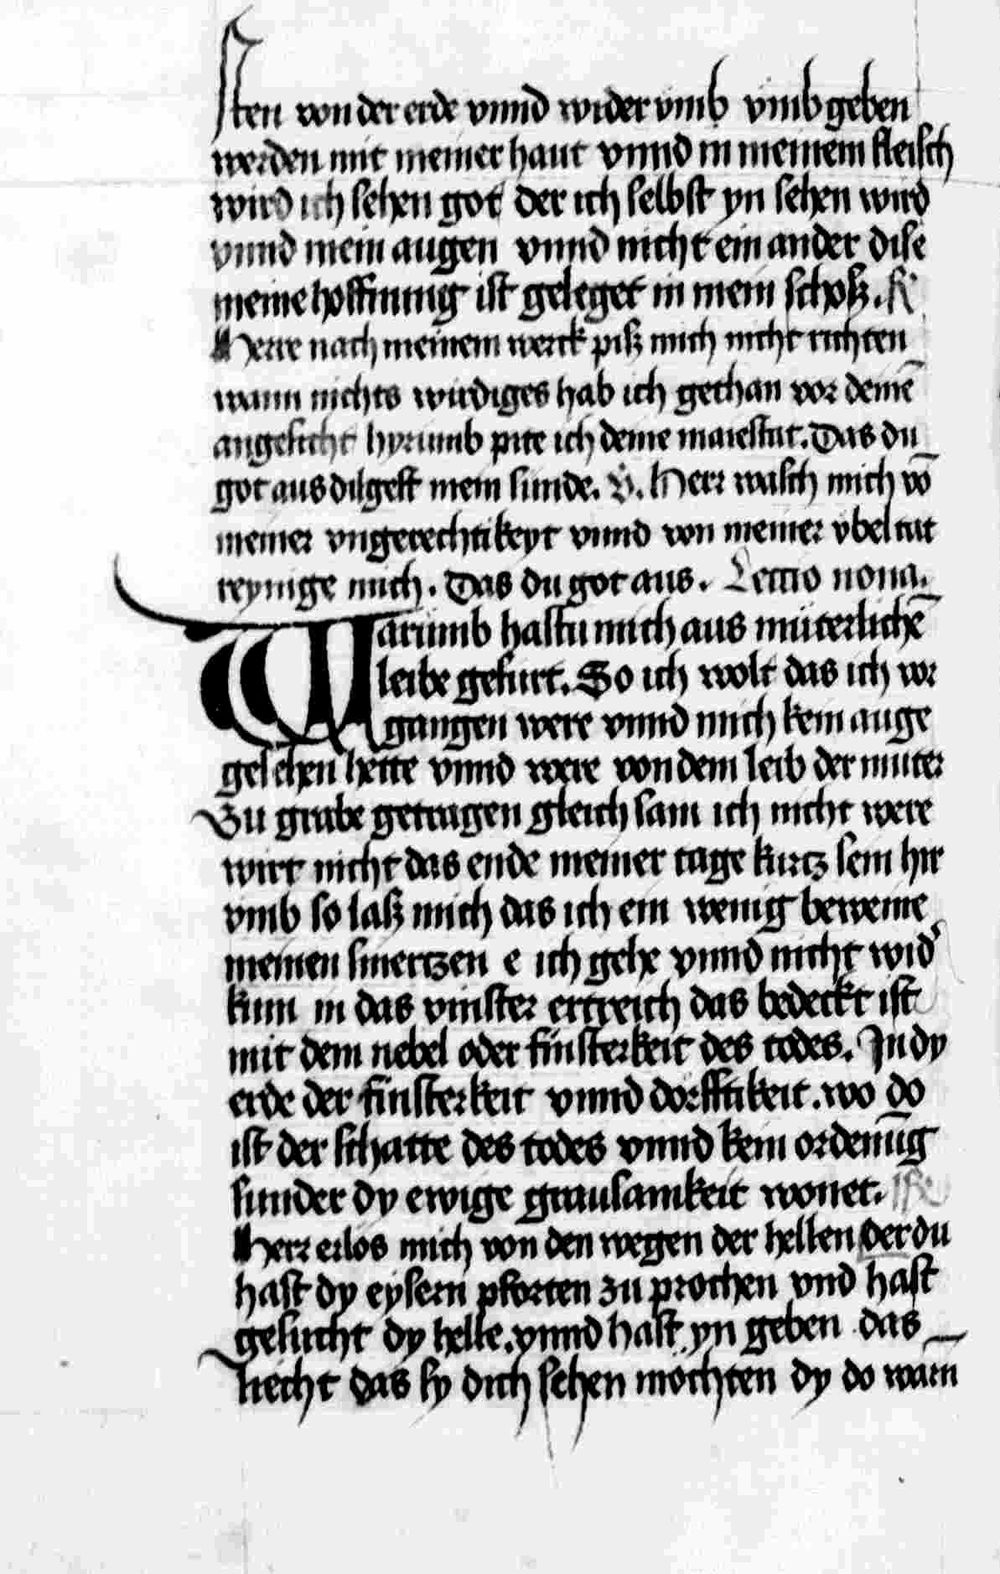 sten von der erde vnnd wider vmb vmbgeben
werden mit meiner haut vnnd in meinem fleisch
wird ich sehen got der ich selbst yn sehen wird
vnnd mein augen vnnd nicht ein ander dise
meine hoffnung ist geleget in mein schosz. R
Herre nach meinem werck pisz mich nicht richten
wann nichts wirdiges hab ich gethan vor deinē
angesicht hyrumb pite ich deine maiestat. Das du
got aus dilgest mein sunde. V. Herr wasch mich vō
meiner vngerechtikeyt vnnd von meiner vbeltat
reynige mich. Das du got aus. Lectio nona.
Warumb hastu mich aus müterlichē
leibe gefurt. So ich wolt das ich vor
gangen were vnnd mich kein auge
gesehen hette vnnd were von dem leib der muter
Zu grabe getragen gleich sam ich nicht were
wirt nicht das ende meiner tage kurtz sein hir
vmb so lasz mich das ich ein wenig beweine
meinen smertzen e ich gehe vnnd nicht wid'
kum in das vinster ertreich das bedeckt ist
mit dem nebel oder finsterkeit des todes. In dy
erde der finsterkeit vnnd dorfftikeit. wo do
ist der schatte des todes vnnd kein ordenūg
sunder dy ewige grausamkeit wonet. R
Herr erlos mich von den wegen der hellen der du
hast dy eysern pforten zu prochen vnd hast
gesucht dy helle. vnnd hast yn geben das
liecht das sy dich sehen mochten dy do warn